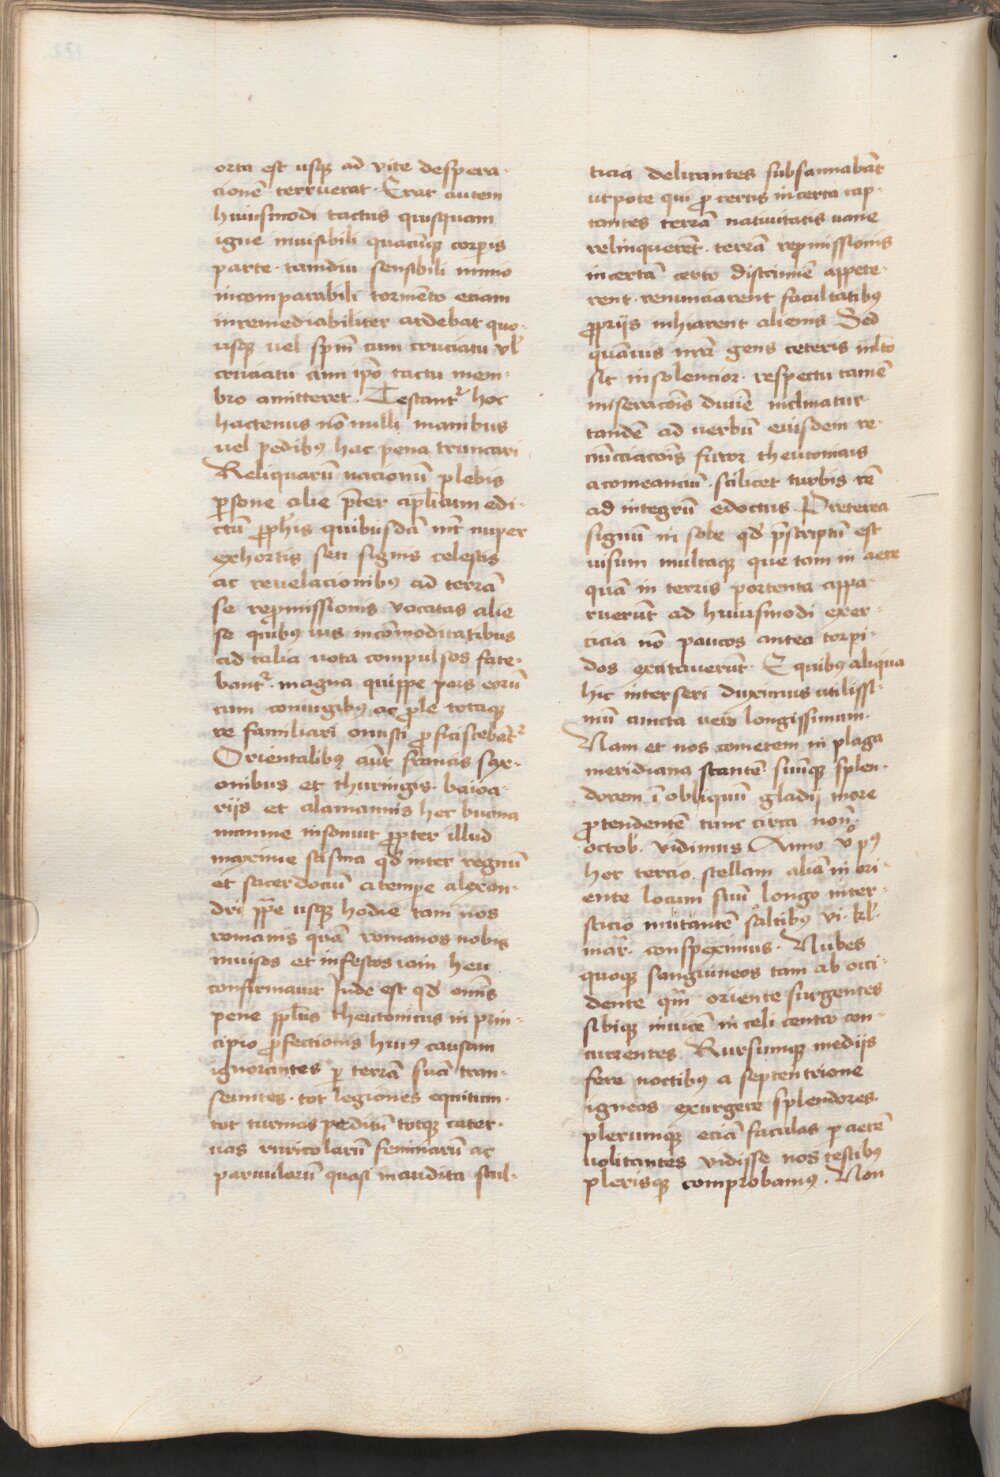 orta est usq; ad vite despera-
cionē terruerat. Erat autem
huiusmodi tactus quisquam
igne inuisibili quacūq; corpis
parte. tamdiu sensibili nimio
incomparabili tormēto eciam
inremediabiliter ardebat quo-
usq; vel spm̄ cum cruciatu vl'
cruciatu cum ipō tactu mem-
bro amitteret. Testantr hoc
hactenus nō nulli manibus
vel pedibꝰ hac pena truncati
Reliquarū nacionū plebis
psone alie p̄ter apl'icum edi-
ctū ꝓph'is quibusdā int' nuper
exhortis seu signis celestis
ac reuelacionibꝰ ad terrā
se repmissionis vocatas alie
se quibꝰ uis incōmoditatibus
ad talia vota compulsos fate-
bantr. magna quippe pars eorū
cum coniugibꝰ ac ꝓle totaq;
re familiari onusti ꝓficiscebātr
Orientalibꝰ aūt francis sax-
onibus et thuringis. baioa-
rijs et alamannis hec bucina
minime insonuit ꝓpter illud
maxime scisma qd' inter regnū
et sacerdociū a tempe alexan-
dri ppe usq; hodie tam nos
romanis quā romanos nobis
inuisos et infestos iam heu
confirmauit Inde est qd' om̄is
pene ppl'us theutonicus in prin-
cipio ꝓfectionis huiꝰ causam
ignorantes p terrā suā tran-
seuntes. tot legiones equitum.
tot turmas peditū totq; cater-
uas ruricolarū feminarū ac
paruularū quasi inaudita stul-
ticia delirantes subsannabāt
utpote qui ꝓ certis incerta cap-
tantes terrā natiuitatis uane
relinquerēt. terrā repmissionis
incertā certo discrimē appete-
rent. renunciarent facultatibꝰ
ꝓprijs inhiarent alienis Sed
quāuis nrā gens ceteris mlto
sit insolencior. respectu tamē
miseracōis diuīe inclinatur
tandē ad verbū eiusdem re-
nūciacōis furor theutonicus
acomeanciū. scilicet turbis rē
ad integrū edoctus. Preterea
signū in sole qd' p̄scriptū est
uisum multaq; que tam in aere
quā in terris portenta appa-
ruerūt ad huiusmodi exer-
cicia nō paucos antea torpi-
dos excitauerūt. E quibꝰ aliqua
hic interseri duximus utilissi-
mū cuncta vero longissimum.
Nam et nos cometem in plaga
meridiana stantē. suūq; splen-
dorem ī obliquū gladij more
ꝓtendentē tunc circa non.
octob'. vidimus Anno v'o pꝰ
hec tercio stellam aliā in ori-
ente locum suū longo inter-
sticio mutantē saltibꝰ vi. kl'.
mar'. conspeximus. Nubes
quoq; sanguineos tam ab occi-
dente qm̄ oriente surgentes
sibiq; inuicē in celi centro con-
currentes Rursumq; medijs
fere noctibꝰ a septentrione
igneos exurgere splendores
plerumq; eciā faculas p aerē
uolitantes vidisse nos testibꝰ
plerisq; comprobamꝰ. Non